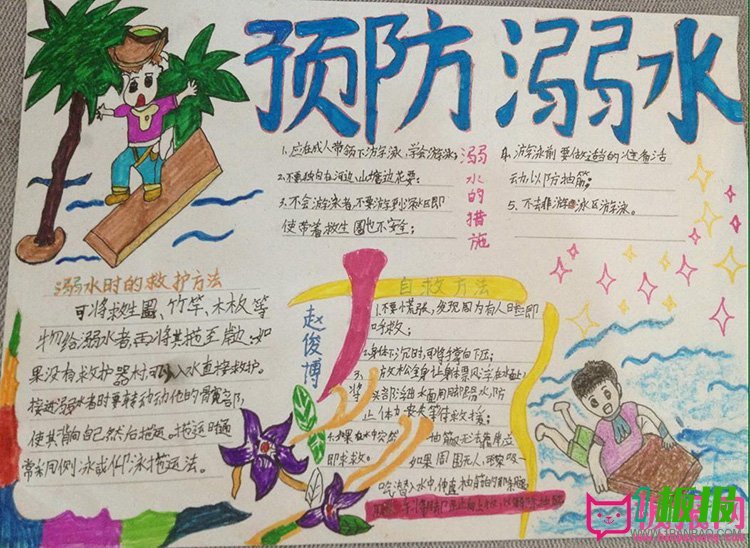 预防溺水
溺水的措施
1、应在成人带领下游泳,学会游泳;
2、不要独自在河边、山塘边玩耍;
3、不会游泳者,不要游到深水区,即
使带着救生圈也不安全;
4、游泳前要做适当的准备活
动,以防抽筋;
5、不去非游泳区游泳。
溺水时的救护方法
可将救生圈、竹竿、木板等
物给溺水者,再将其拖至岸边;如
果没有救护器材,可入水直接救护。
接近溺水者时要转动他的髋部,
使其背向自己然后拖运。拖运时通
常采用侧泳或仰泳拖运法。
赵俊博
自救方法
1、不要慌张,发现周围有人时立即
呼救;
2、身体下沉时,可将手掌向下压;
3、放松全身,让身体漂浮在水面上,
将头部浮出水面,用脚踢水,防
止体力丧失,等待救援;
4、如果在水中突然抽筋,又无法靠岸,立
即求救。如果周围无人,
潜入水中,伸直抽筋的那条腿,
板报网
WWW.1BANBAO.COM